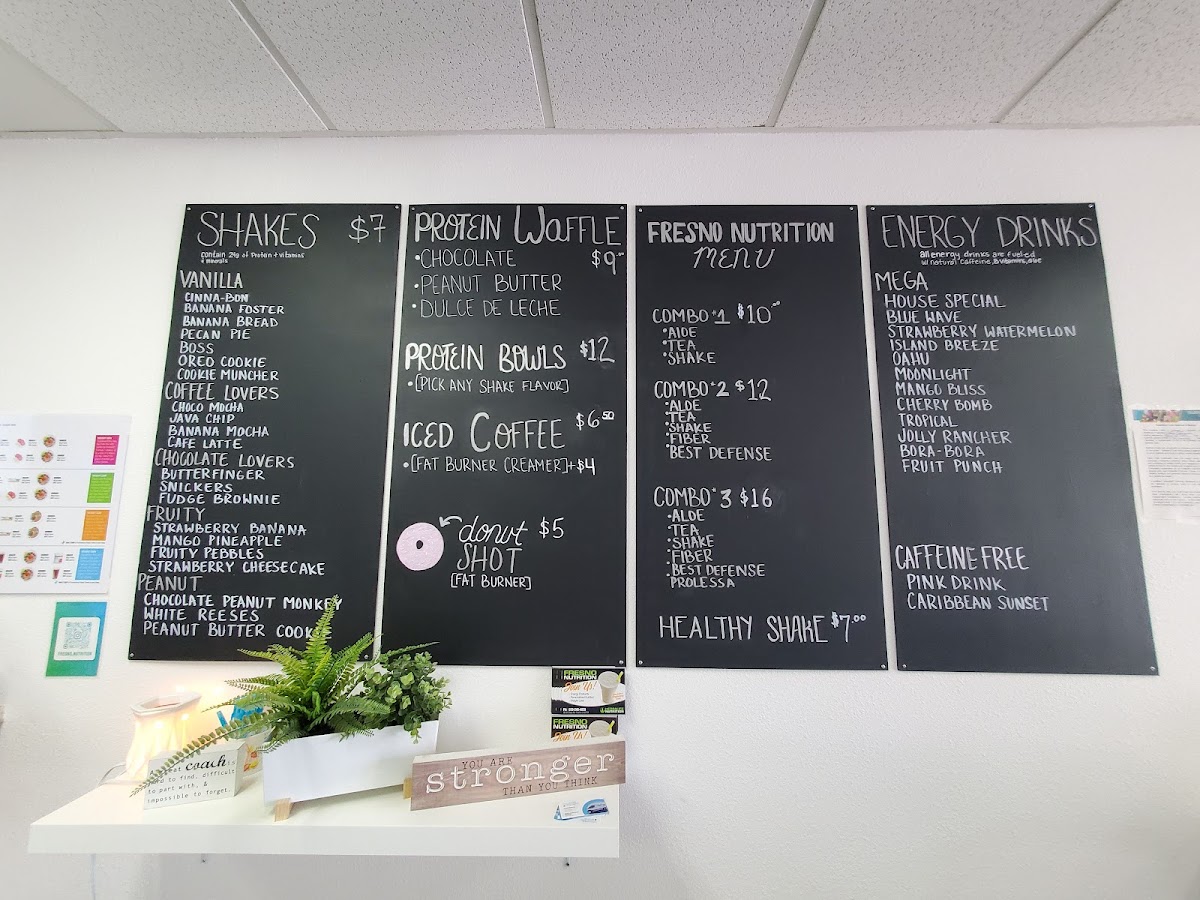 SHAKES $7
contain 24g of Protein + vitamins
+ minerals
VANILLA
CINNA-BON
BANANA FOSTER
BANANA BREAD
PECAN PIE
BOSS
OREO COOKIE
COOKIE MUNCHER
COFFEE LOVERS
CHOCO MOCHA
JAVA CHIP
BANANA MOCHA
CAFE LATTE
CHOCOLATE LOVERS
BUTTERFINGER
SNICKERS
FUDGE BROWNIE
FRUITY
STRAWBERRY BANANA
MANGO PINEAPPLE
FRUITY PEBBLES
STRAWBERRY CHEESECAKE
PEANUT
CHOCOLATE PEANUT MONKEY
WHITE REESES
PEANUT BUTTER COOK
PROTEIN WAFFLE
•CHOCOLATE $9.00
•PEANUT BUTTER
•DULCE DE LECHE
PROTEIN BOWLS $12
•[PICK ANY SHAKE FLAVOR]
ICED COFFEE $6.50
•[FAT BURNER CREAMER]+$4
donut $5
SHOT
[FAT BURNER]
FRESNO NUTRITION
MENU
COMBO #1 $10.00
•ALOE
•TEA
•SHAKE
COMBO #2 $12
•ALOE
•TEA
•SHAKE
•FIBER
•BEST DEFENSE
COMBO #3 $16
•ALOE
•TEA
•SHAKE
•FIBER
•BEST DEFENSE
•PROLESSA
HEALTHY SHAKE $7.00
ENERGY DRINKS
all energy drinks are fueled
w/ natural caffeine, B vitamins, aloe
MEGA
HOUSE SPECIAL
BLUE WAVE
STRAWBERRY WATERMELON
ISLAND BREEZE
OAHU
MOONLIGHT
MANGO BLISS
CHERRY BOMB
TROPICAL
JOLLY RANCHER
BORA-BORA
FRUIT PUNCH
CAFFEINE FREE
PINK DRINK
CARIBBEAN SUNSET
FRESNO.NUTRITION
FRESNO
NUTRITION
Join Us!
FRESNO
NUTRITION
Join Us!
coach is
to find, difficult
to part with, &
impossible to forget.
YOU ARE
stronger
THAN YOU THINK